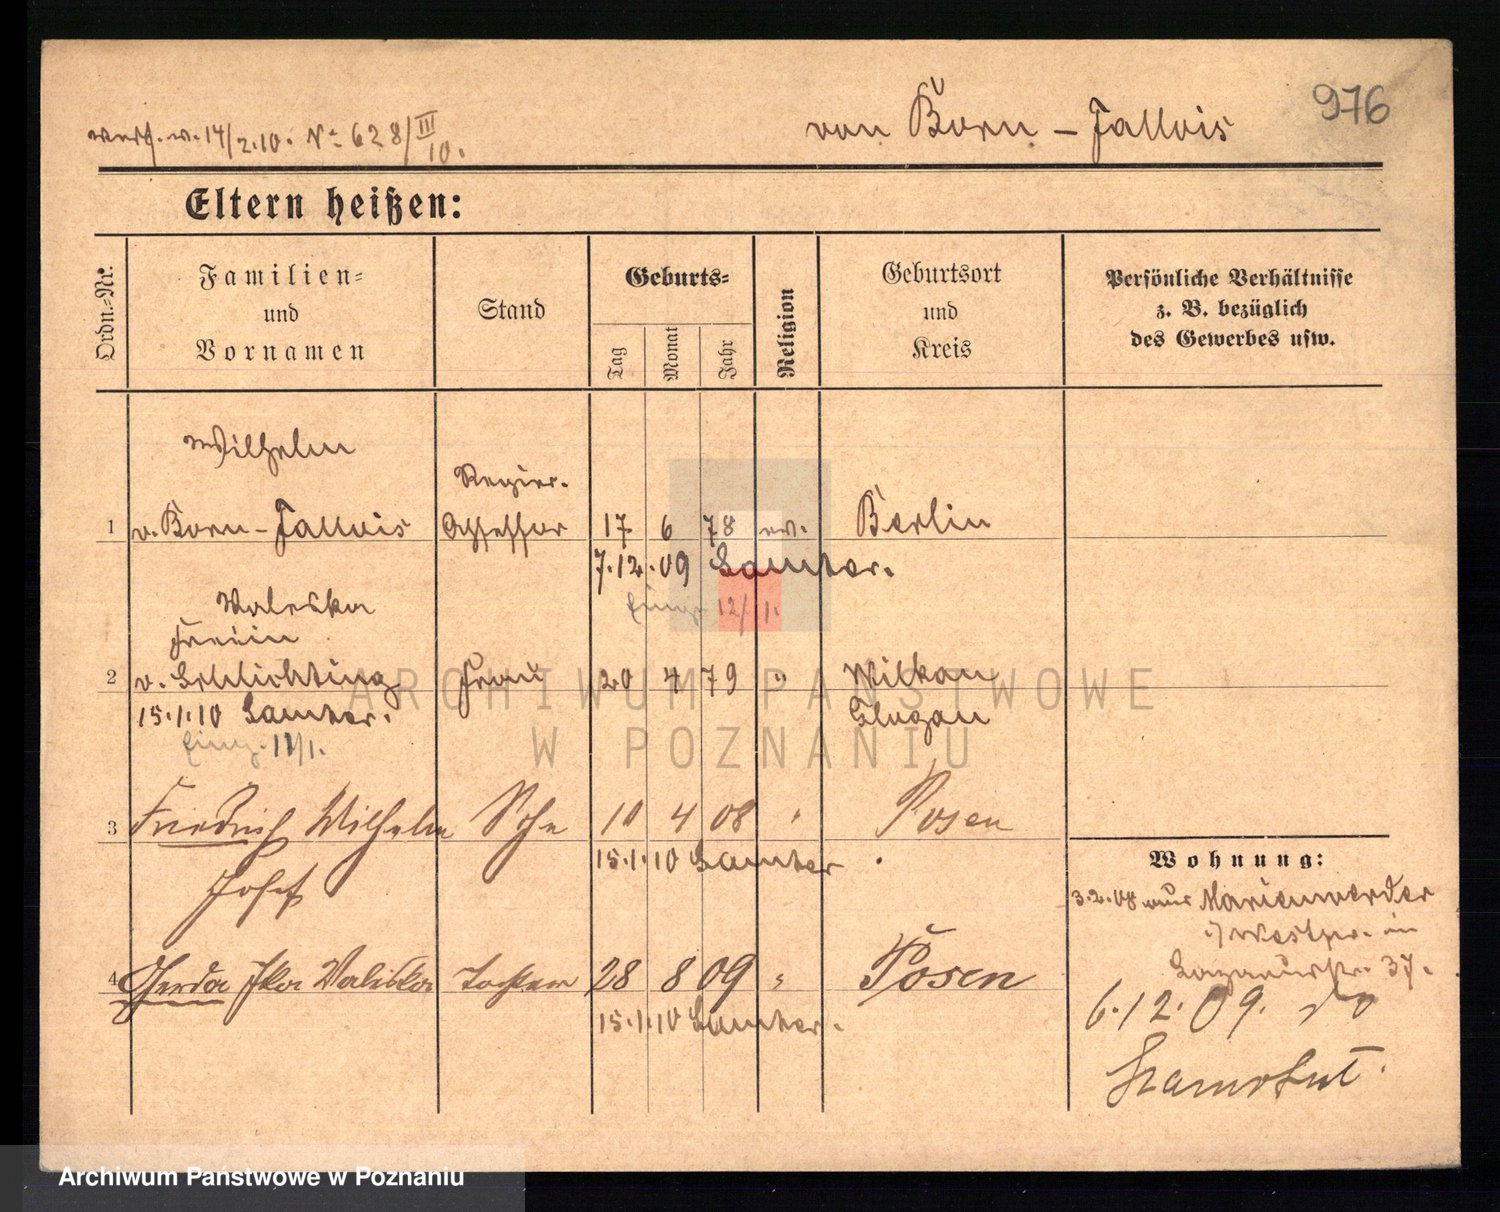 976
von Born - Fallois
verf. v. 14/2.10. No 628/III 10.
Eltern heißen:
Ordn.-Nr.
Familien-
und
Vornamen
Stand
Geburts-
Tag
Monat
Jahr
Religion
Geburtsort
und
Kreis
Persönliche Verhältnisse
z. B. bezüglich
des Gewerbes usw.
Wilhelm
Regier.
1 v. Born - Fallois Assessor 17 6 78 ev. Berlin
7.12.09 Samter.
12/1.
Valeska
Freiin
2 v. Schlichting Frau 20 4 79 " Wilkau
15.1.10 Samter. Glogau
11/1.
3 Friedrich Wilhelm Sohn 10 4 08 " Posen
15.1.10 Samter
Josef
4 Gerda Ilka Valeska Tochter 28 8 09 " Posen
15.1.10 Samter.
Wohnung:
3.2.08 aus Marienwerder
i/Westpr. in
37.
6.12.09.
ARCHIWUM PAŃSTWOWE
W POZNANIU
Archiwum Państwowe w Poznaniu